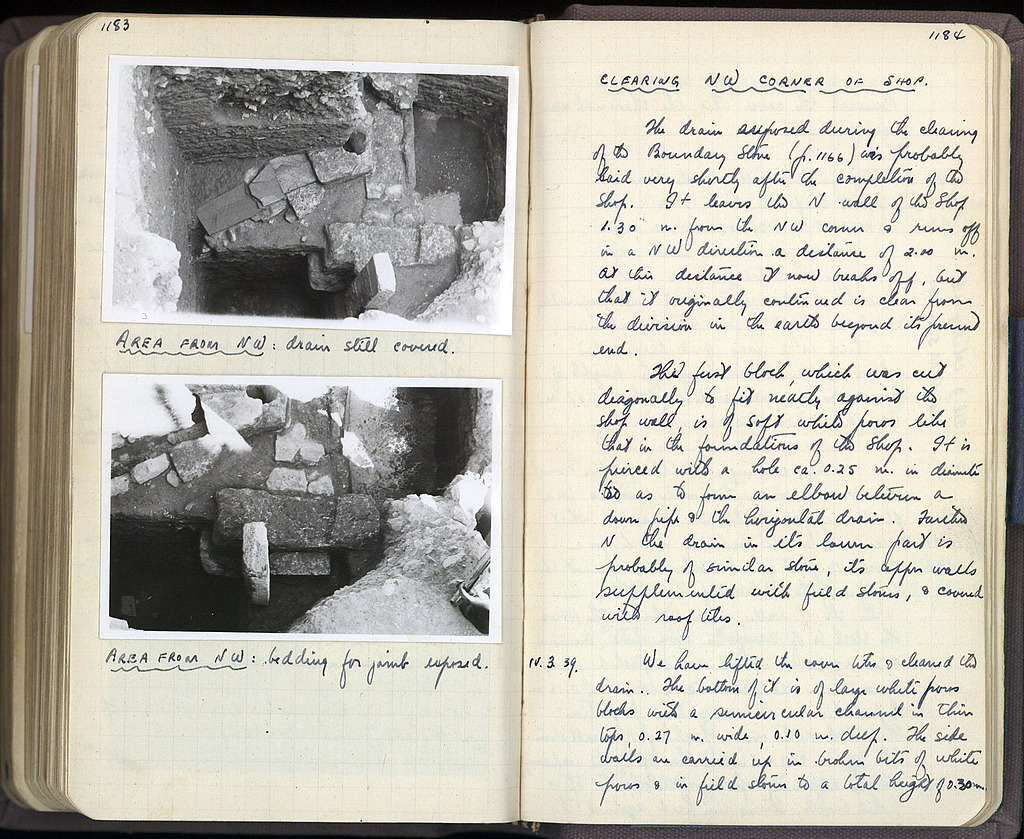 1183
AREA FROM NW: drain still covered.
AREA FROM NW: bedding for jamb exposed.
1184
CLEARING NW CORNER OF SHOP.
The drain exposed during the clearing
of the Boundary Stone (p. 1166) was probably
laid very shortly after the completion of the
Shop. It leaves the N wall of the Shop
1.30 m. from the NW corner & runs off
in a NW direction a distance of 2.00 m.
At this distance it now breaks off, but
that it originally continued is clear from
the division in the earth beyond its present
end.
The first block, which was cut
diagonally to fit neatly against the
shop wall, is of soft white poros like
that in the foundations of the Shop. It is
pierced with a hole ca. 0.25 m. in diameter
so as to form an elbow between a
down pipe & the horizontal drain. Further
N the drain in its lower part is
probably of similar stone, its upper walls
supplemented with field stones, & covered
with roof tiles.
IV. 3. 39.
We have lifted the cover tiles & cleared the
drain.. The bottom of it is of large white poros
blocks with a semicircular channel in their
tops, 0.27 m. wide, 0.10 m. deep. The side
walls are carried up in broken bits of white
poros & in field stones to a total height of 0.30 m.